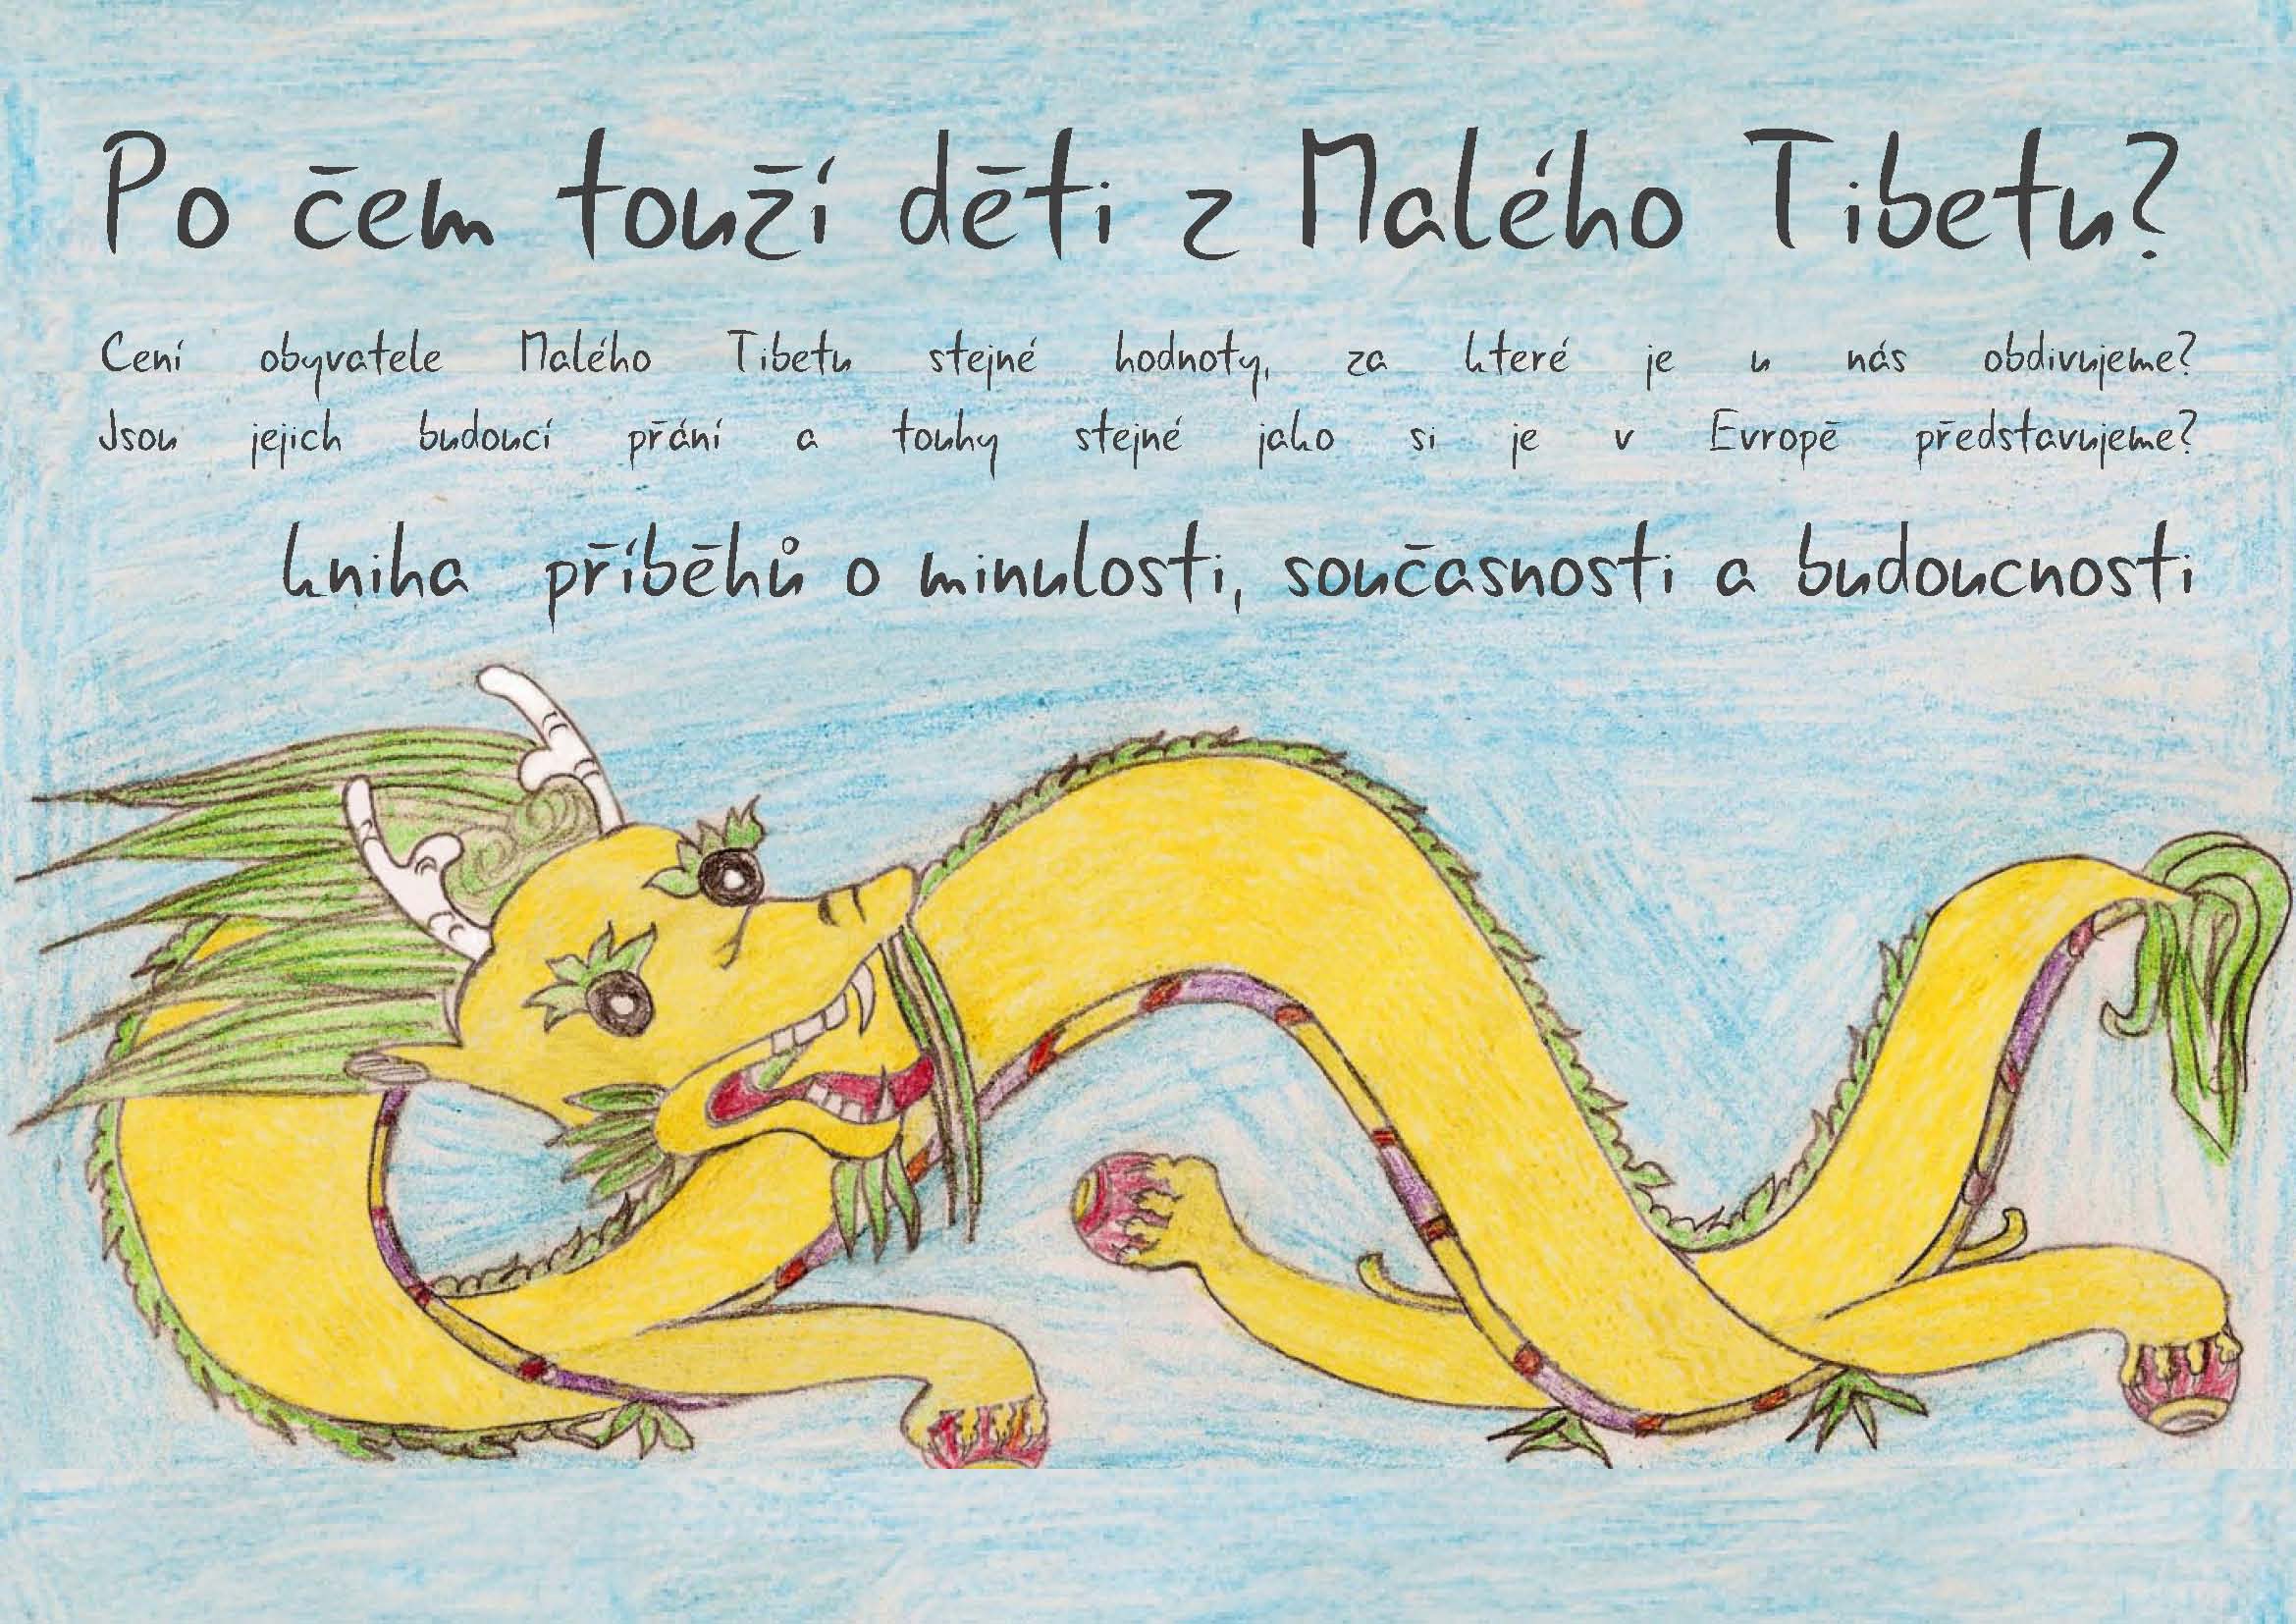 Po čem touží děti z Malého Tibetu?
Cení obyvatele Malého Tibetu stejné hodnoty, za které je u nás obdivujeme?
Jsou jejich budoucí přání a touhy stejné jako si je v Evropě představujeme?
kniha příběhů o minulosti, současnosti a budoucnosti